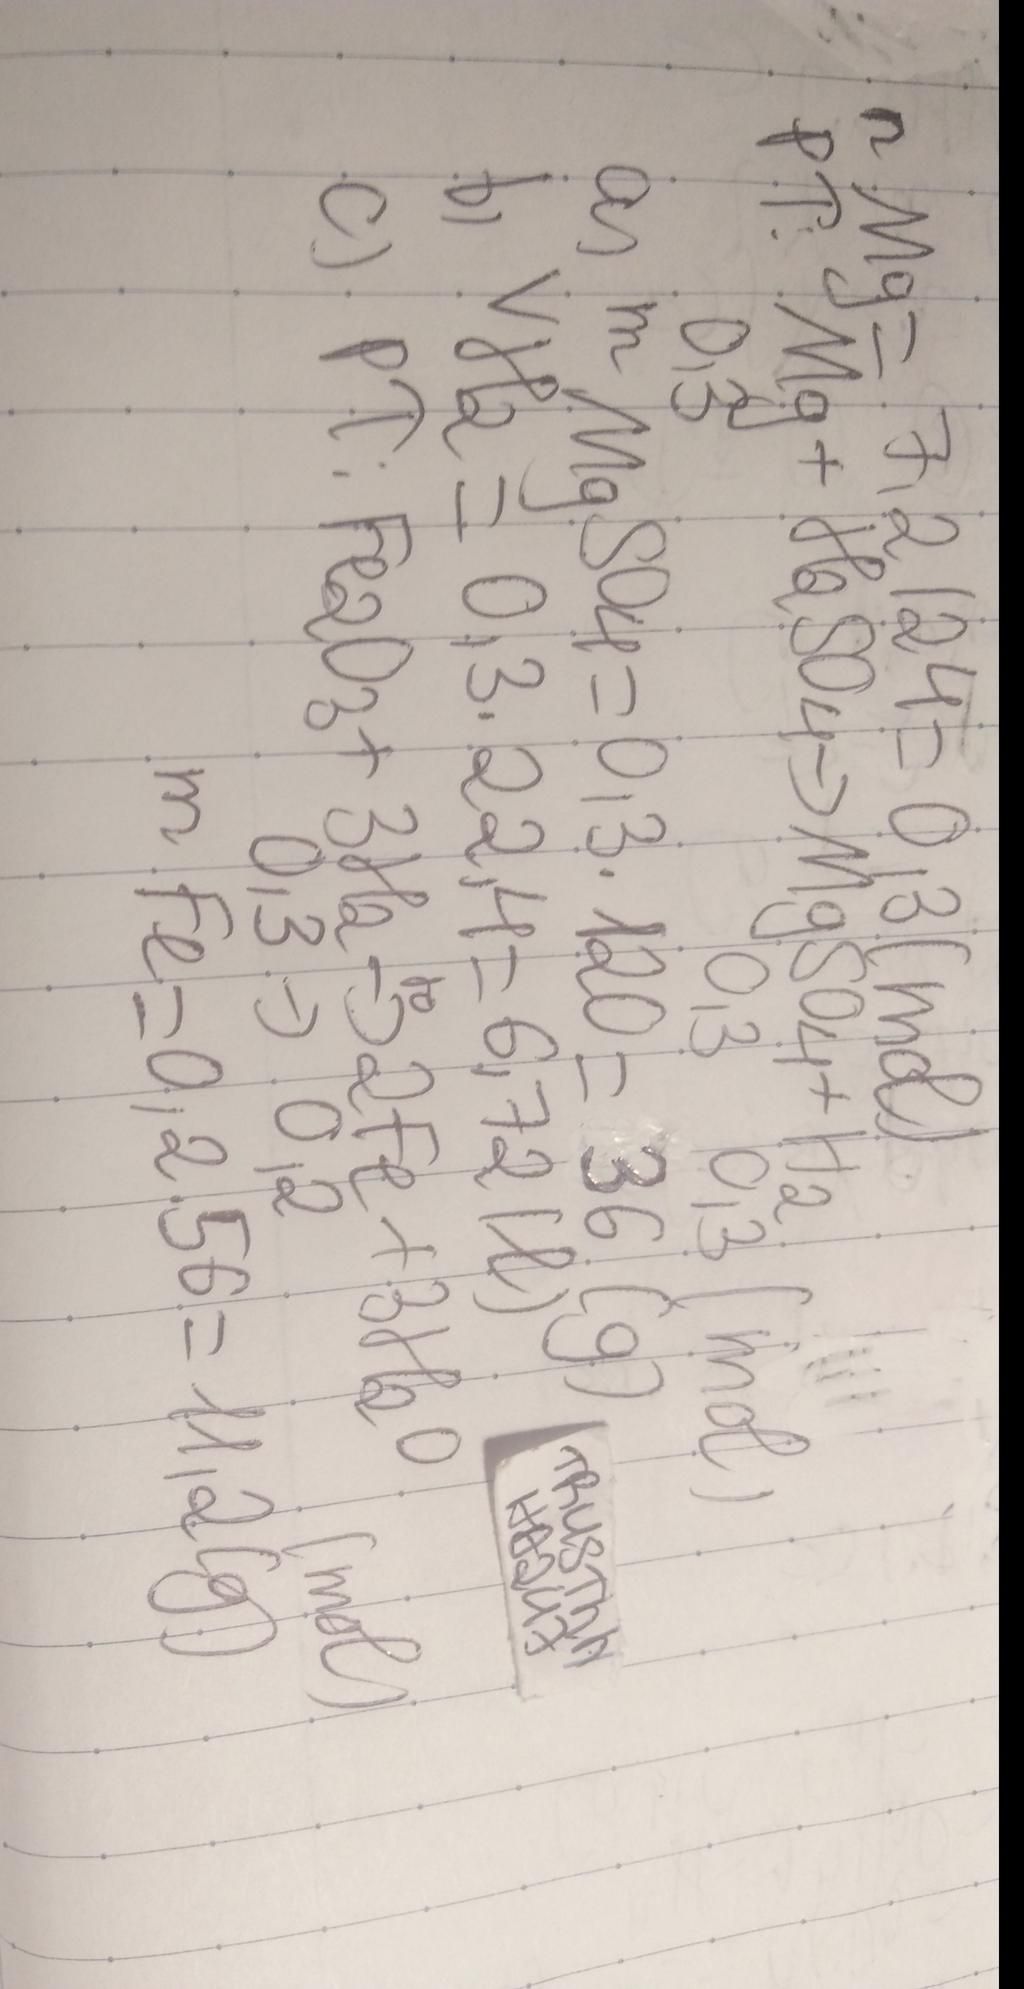 nMg = 7,2/24 = 0,3 (mol)
PT: Mg + H2SO4 -> MgSO4 + H2
0,3 0,3 0,3 (mol)
a, mMgSO4 = 0,3.120 = 36 (g)
b, VH2 = 0,3.22,4 = 6,72 (l)
c) PT: Fe2O3 + 3H2 -to> 2Fe + 3H2O
0,3 -> 0,2 (mol)
mFe = 0,2.56 = 11,2 (g)